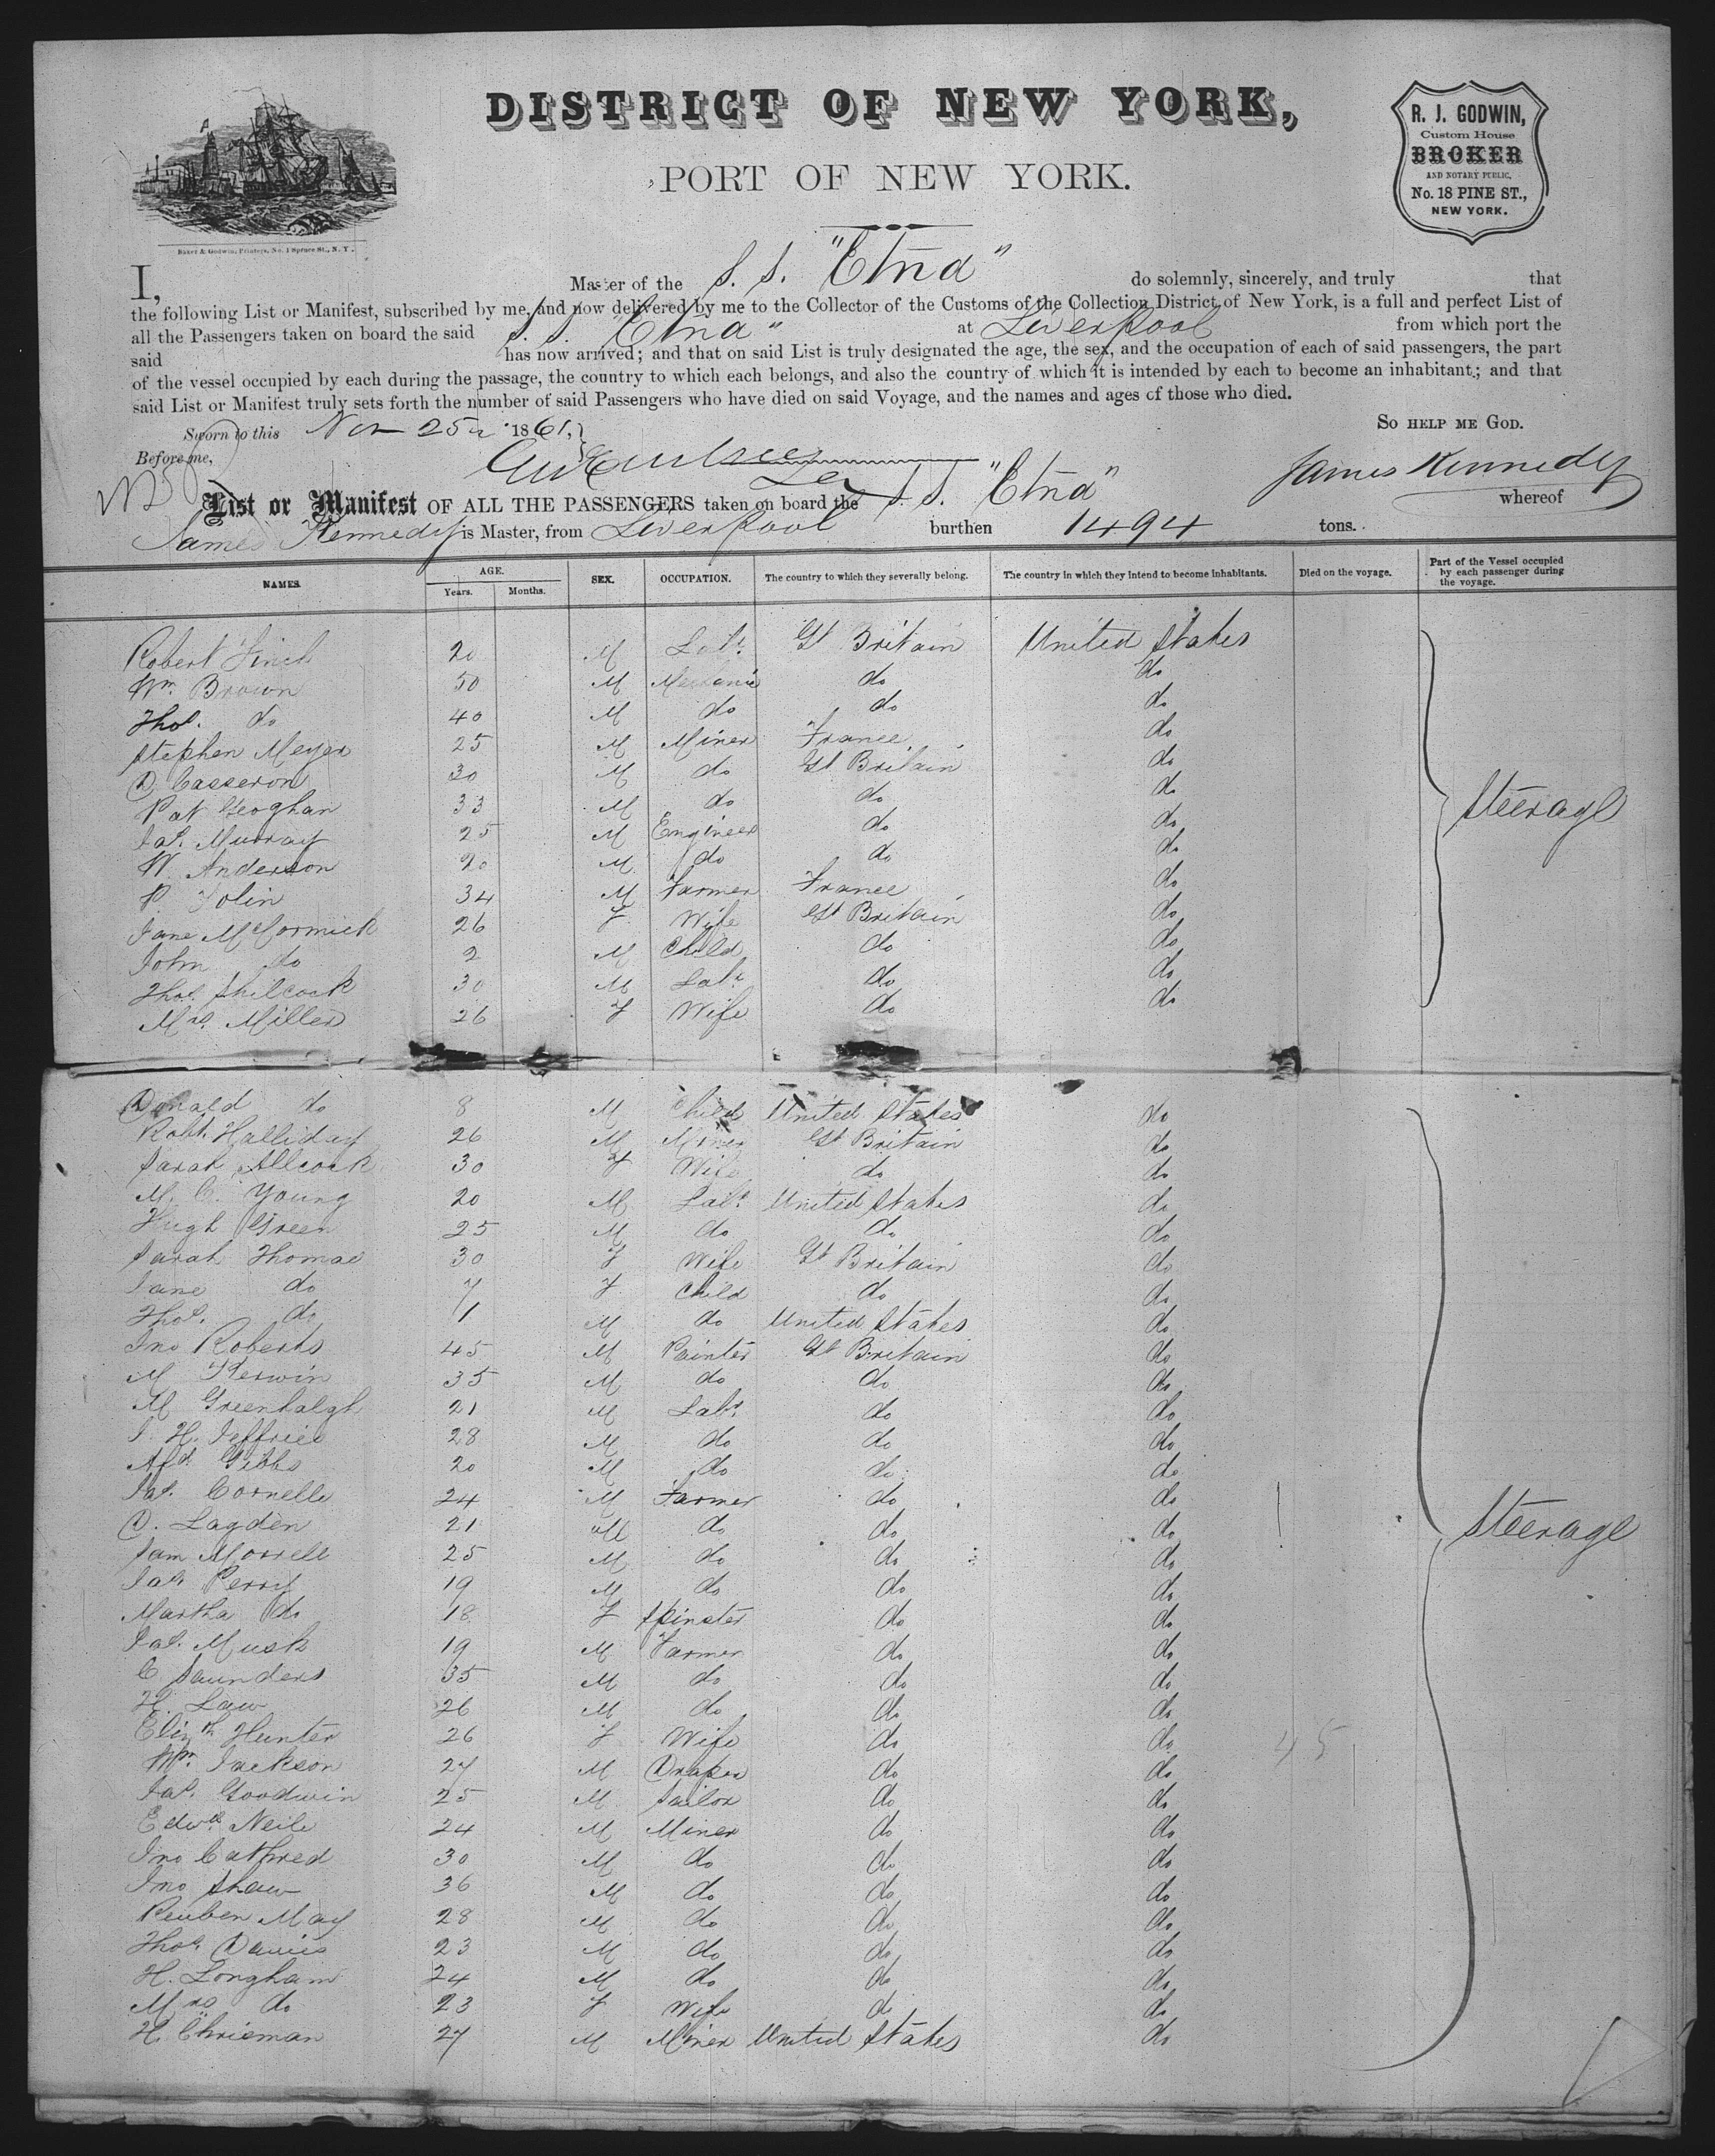 DISTRICT OF NEW YORK,
PORT OF NEW YORK.
R. J. GODWIN,
Custom House
BROKER
AND NOTARY PUBLIC,
No. 18 PINE ST.,
NEW YORK.
Baker & Godwin, Printers, No. 1 Spruce St., N. Y.
I, Master of the S. S. "Etna" do solemnly, sincerely, and truly that
the following List or Manifest, subscribed by me, and now delivered by me to the Collector of the Customs of the Collection District of New York, is a full and perfect List of
all the Passengers taken on board the said S. S. "Etna" at Liverpool from which port the
said has now arrived; and that on said List is truly designated the age, the sex, and the occupation of each of said passengers, the part
of the vessel occupied by each during the passage, the country to which each belongs, and also the country of which it is intended by each to become an inhabitant; and that
said List or Manifest truly sets forth the number of said Passengers who have died on said Voyage, and the names and ages of those who died.
Sworn to this Nov 25 1861, SO HELP ME GOD.
Before me, James Kennedy
List or Manifest OF ALL THE PASSENGERS taken on board the S. S. "Etna" whereof
James Kennedy is Master, from Liverpool burthen 1494 tons.
NAMES. AGE. SEX. OCCUPATION. The country to which they severally belong. The country in which they intend to become inhabitants. Died on the voyage. Part of the Vessel occupied by each passenger during the voyage.
Years. Months.
Robert Finch 20 M Labr. Gt Britain United States
Wm. Brown 50 M Mechanic do do
Thos. do 40 M do do do
Stephen Meyer 25 M Miner France do
D. Casseron 30 M do Gt Britain do
Pat Geoghan 33 M do do do
Jas. Murray 25 M Engineer do do
W. Anderson 20 M do do do
P. Tolin 34 M Farmer France do
Jane McCormick 26 F Wife Gt Britain do
John do 2 M Child do do
Thos. Shilcock 30 M Labr do do
Mrs. Miller 26 F Wife do do
Steerage
Donald do 8 M Child United States do
Robt. Halliday 26 M Miner Gt Britain do
Sarah Allcock 30 F Wife do do
M. C. Young 20 M Labr. United States do
Hugh Green 25 M do do do
Sarah Thomas 30 F Wife Gt Britain do
Jane do 7 F Child do do
Thos. do 1 M do United States do
Jno Roberts 45 M Painter Gt Britain do
M Kerwin 35 M do do do
M Greenhalgh 21 M Labr. do do
J. H. Jeffries 28 M do do do
Afd. Gibbs 20 M do do do
Jas. Cornelle 24 M Farmer do do
D. Lagden 21 M do do do
Sam Morrell 25 M do do do
Jas Perry 19 M do do do
Martha do 18 F Spinster do do
Jas. Musk 19 M Farmer do do
C Saunders 35 M do do do
H. Law 26 M do do do
Elizth Hunter 26 F Wife do do
Wm. Jackson 27 M Draper do do
Jas. Goodwin 25 M Sailor do do
Edwd. Neile 24 M Miner do do
Jno Cathred 30 M do do do
Jno Shaw 36 M do do do
Reuben May 28 M do do do
Thos Davies 23 M do do do
H. Longham 24 M do do do
Mrs do 23 F Wife do do
H. Chrisman 27 M Miner United States do
Steerage
45